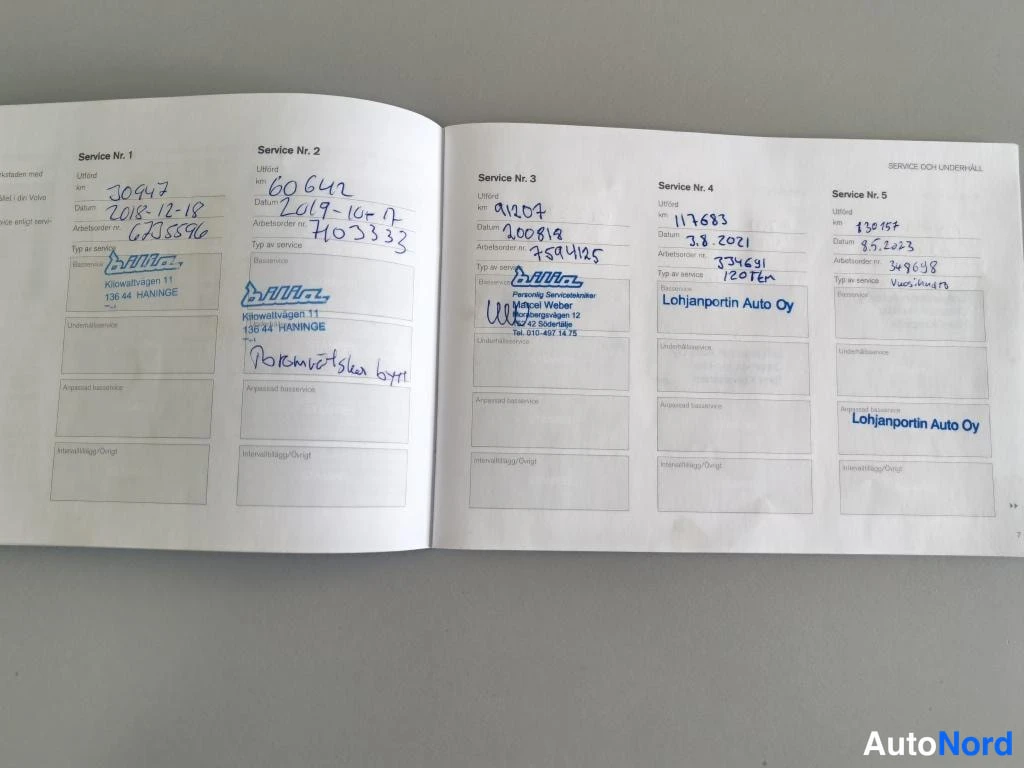 rkstaden med
ållet i din Volvo
vice enligt servi-
Service Nr. 1
Utförd
km 30947
Datum 2018-12-18
Arbetsorder nr. 6735596
Typ av service
Basservice
bilia
Kilowattvägen 11
136 44 HANINGE
Underhållsservice
Anpassad basservice
Intervalltillägg/Övrigt
Service Nr. 2
Utförd
km 60642
Datum 2019-10-17
Arbetsorder nr. 7103333
Typ av service
Basservice
bilia
Kilowattvägen 11
136 44 HANINGE
Bromvätska bytt
Anpassad basservice
Intervalltillägg/Övrigt
SERVICE OCH UNDERHÅLL
Service Nr. 3
Utförd
km 91207
Datum 200818
Arbetsorder nr. 7594125
Typ av service
Basservice
bilia
Personlig Servicetekniker
Marcel Weber
Morabergsvägen 12
152 42 Södertälje
Tel. 010-497 14 75
Underhållsservice
Anpassad basservice
Intervalltillägg/Övrigt
Service Nr. 4
Utförd
km 117683
Datum 3.8.2021
Arbetsorder nr. 334691
Typ av service 120Tkm
Basservice
Lohjanportin Auto Oy
Underhållsservice
Anpassad basservice
Intervalltillägg/Övrigt
Service Nr. 5
Utförd
km 130157
Datum 8.5.2023
Arbetsorder nr. 349698
Typ av service Vuosihuolto
Basservice
Underhållsservice
Anpassad basservice
Lohjanportin Auto Oy
Intervalltillägg/Övrigt
7
AutoNord